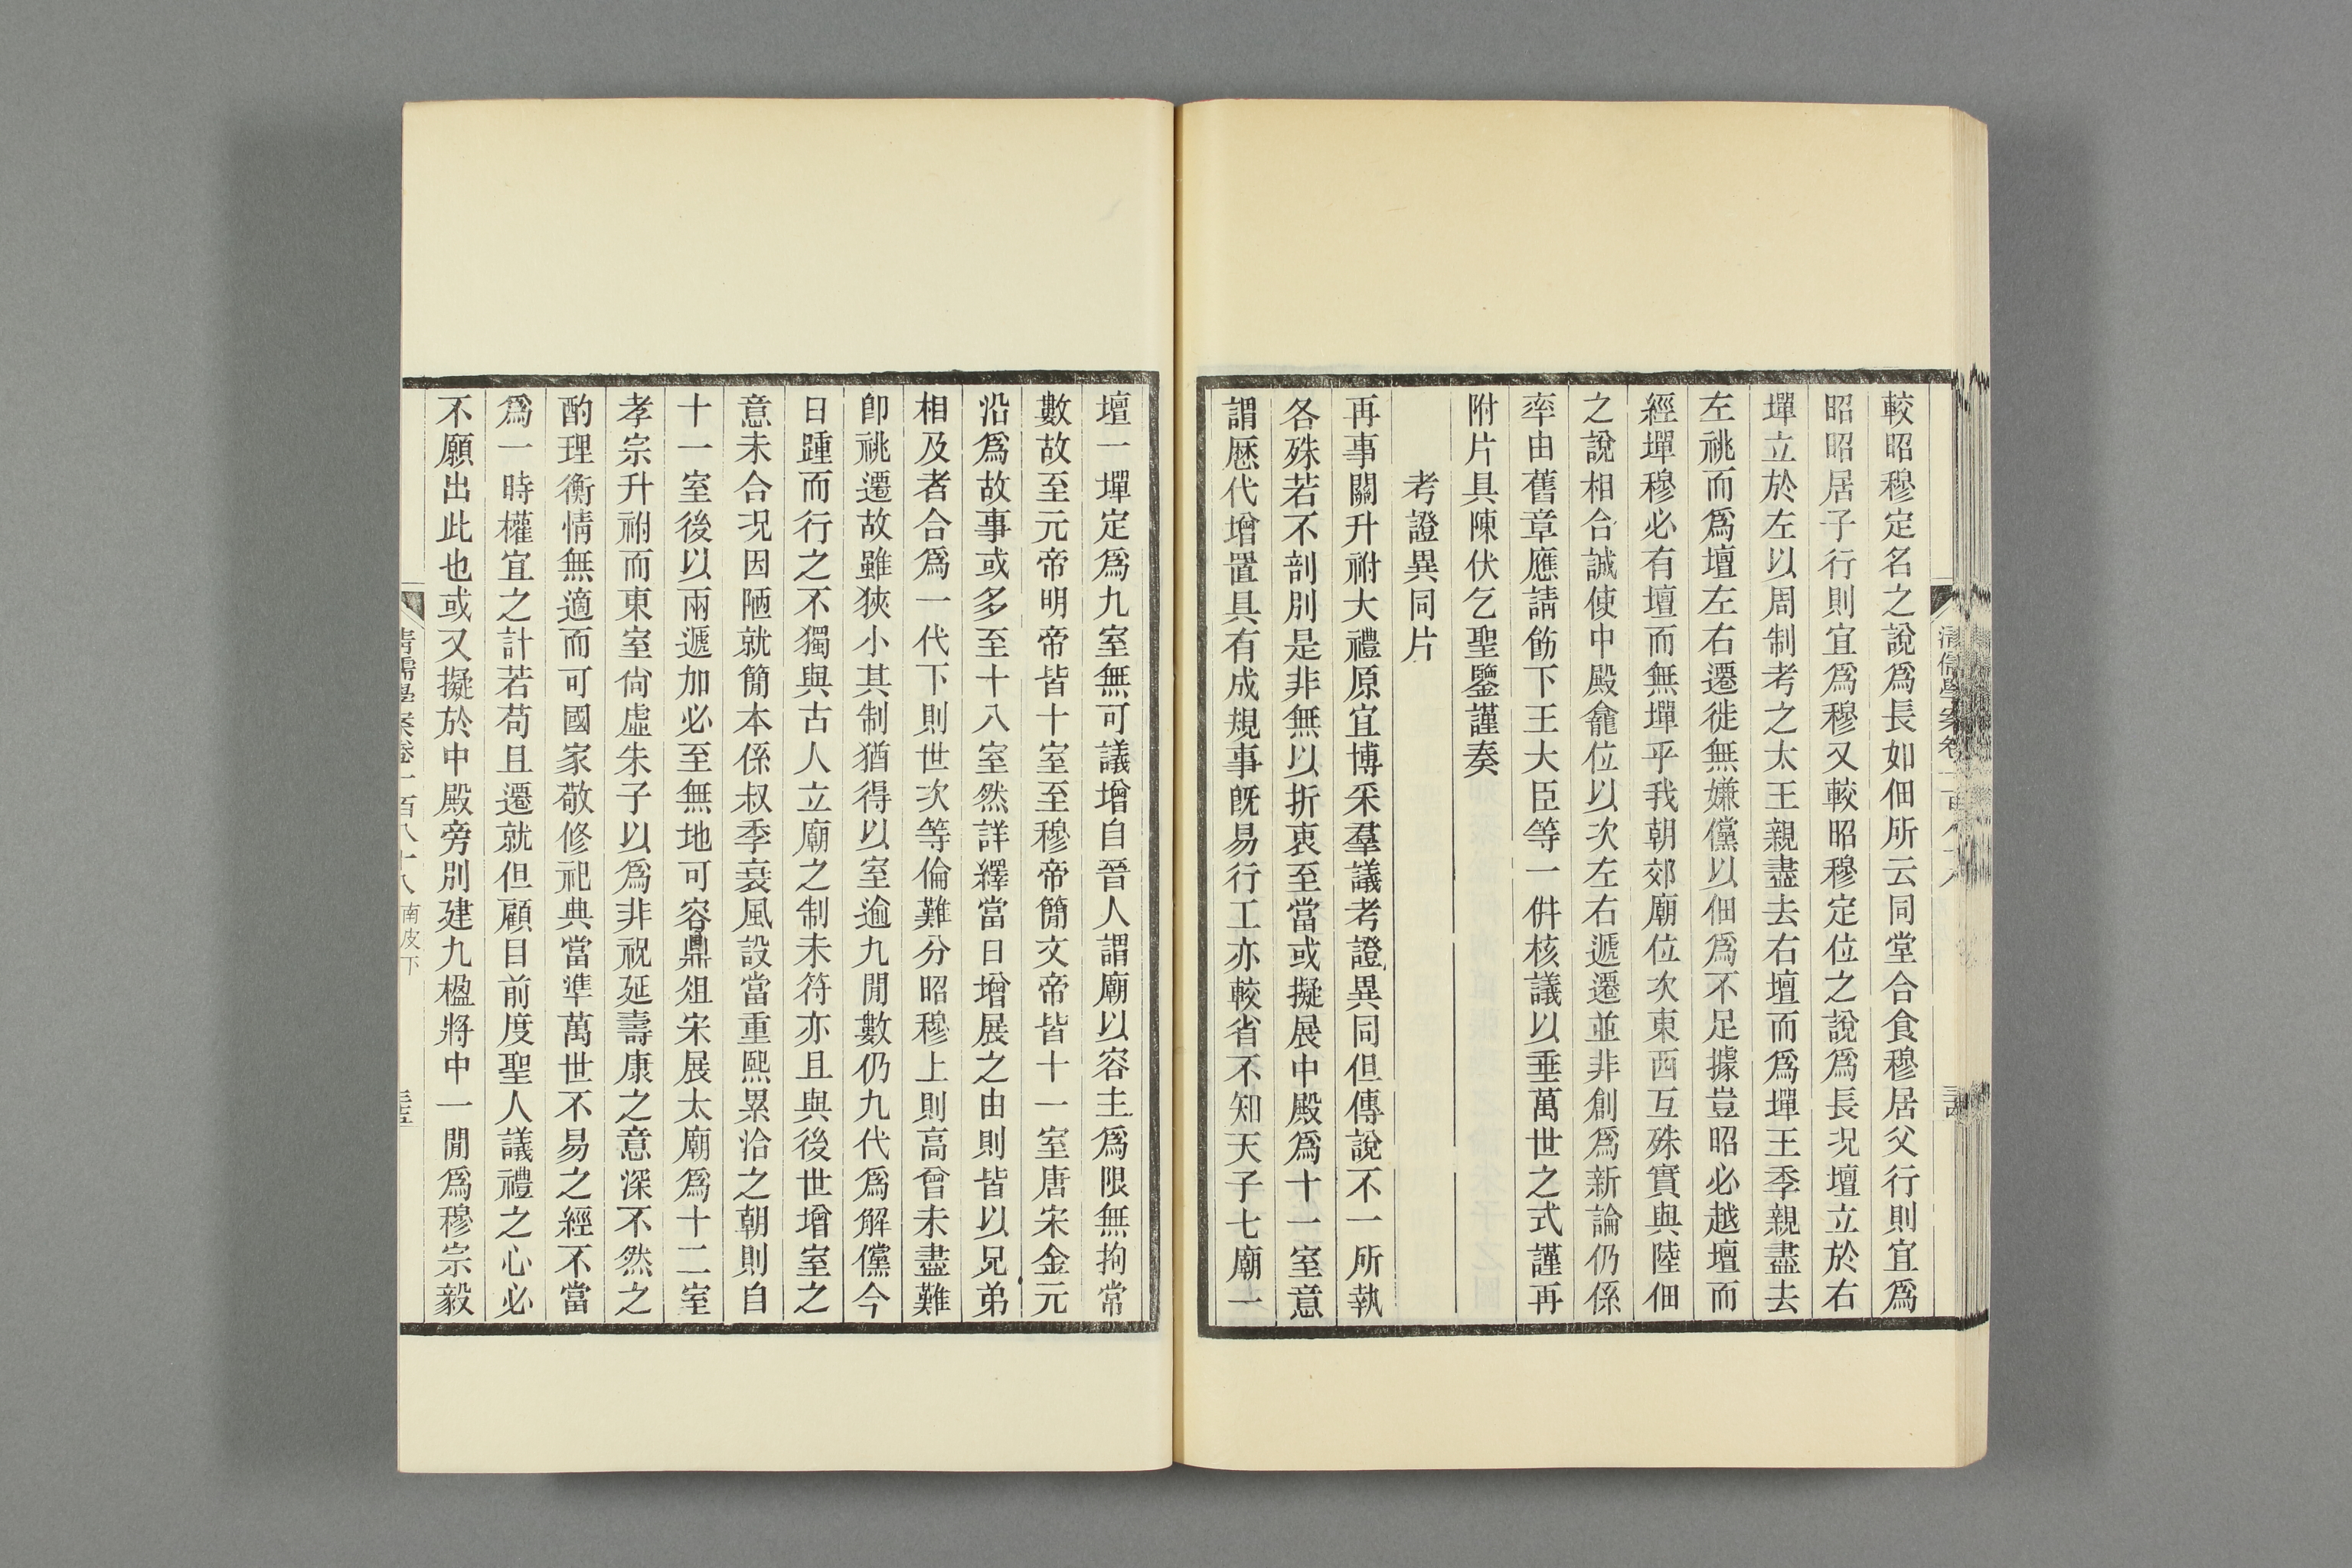 較昭穆定名之說爲長如佃所云同堂合食穆居父行則宜爲
昭昭居子行則宜爲穆又較昭穆定位之說爲長況壇立於右
墠立於左以周制考之太王親盡去右壇而爲墠王季親盡去
左祧而爲壇左右遷徙無嫌儻以佃爲不足據豈昭必越壇而
經墠穆必有壇而無墠乎我朝郊廟位次東西互殊實與陸佃
之說相合誠使中殿龕位以次左右遞遷並非創爲新論仍係
率由舊章應請飭下王大臣等一倂核議以垂萬世之式謹再
附片具陳伏乞聖鑒謹奏
考證異同片
再事關升祔大禮原宜博采羣議考證異同但傳說不一所執
各殊若不剖別是非無以折衷至當或擬展中殿爲十一室意
謂厯代增置具有成規事旣易行工亦較省不知天子七廟一
壇一墠定爲九室無可議增自晉人謂廟以容主爲限無拘常
數故至元帝明帝皆十室至穆帝簡文帝皆十一室唐宋金元
沿爲故事或多至十八室然詳繹當日增展之由則皆以兄弟
相及者合爲一代下則世次等倫難分昭穆上則高曾未盡難
卽祧遷故雖狹小其制猶得以室逾九閒數仍九代爲解儻今
日踵而行之不獨與古人立廟之制未符亦且與後世增室之
意未合況因陋就簡本係叔季衰風設當重熙累洽之朝則自
十一室後以兩遞加必至無地可容鼎俎宋展太廟爲十二室
孝宗升祔而東室尙虛朱子以爲非祝延壽康之意深不然之
酌理衡情無適而可國家敬修祀典當準萬世不易之經不當
爲一時權宜之計若苟且遷就但顧目前度聖人議禮之心必
不願出此也或又擬於中殿旁別建九楹將中一閒爲穆宗毅
清儒學案卷一百八十八 南皮下